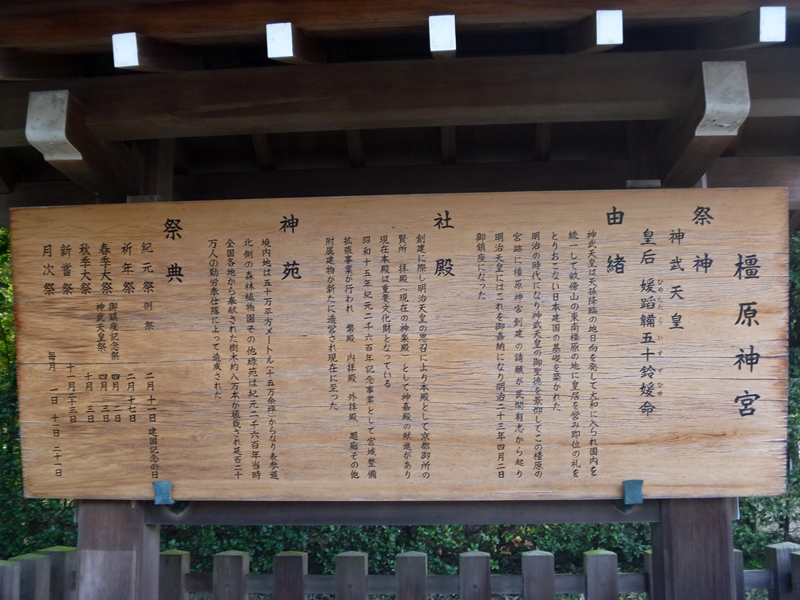 橿原神宮
祭神
神武天皇
ひめたたらいすずひめ
皇后 媛蹈韛五十鈴媛命
由緒
神武天皇は天孫降臨の地日向を発して大和に入られ国内を
統一して畝傍山の東南橿原の地に皇居を営み即位の礼を
とりおこない日本建国の基礎を築かれた
明治の時代になり神武天皇の御聖徳を景仰してこの橿原の
宮跡に橿原神宮創建の請願が民間有志から起り
明治天皇にはこれを御嘉納になり明治二十三年四月二日
御鎮座になった
社殿
創建に際し明治天皇の思召により本殿として京都御所の
賢所 拝殿(現在の神楽殿)として神嘉殿の献進があり
現在本殿は重要文化財となっている
昭和十五年紀元二千六百年記念事業として宮域整備
拡張事業が行われ 幣殿 内拝殿 外拝殿 廻廊その他
附属建物が新たに造営され現在に至った
神苑
境内地は五十万平方メートル(十五万余坪)からなり表参道
北側の森林植物園その他緑苑は紀元二千六百年当時
全国各地から奉献された樹木約八万本が植栽され延百二十
万人の勤労奉仕隊によって造成された
祭典
紀元祭 例祭 二月十一日 建国記念の日
祈年祭 二月十七日
春季大祭 御鎮座記念祭 四月二日
神武天皇祭 四月三日
秋季大祭 十月三日
新嘗祭 十一月二十三日
月次祭 毎月 一日 十一日 二十一日